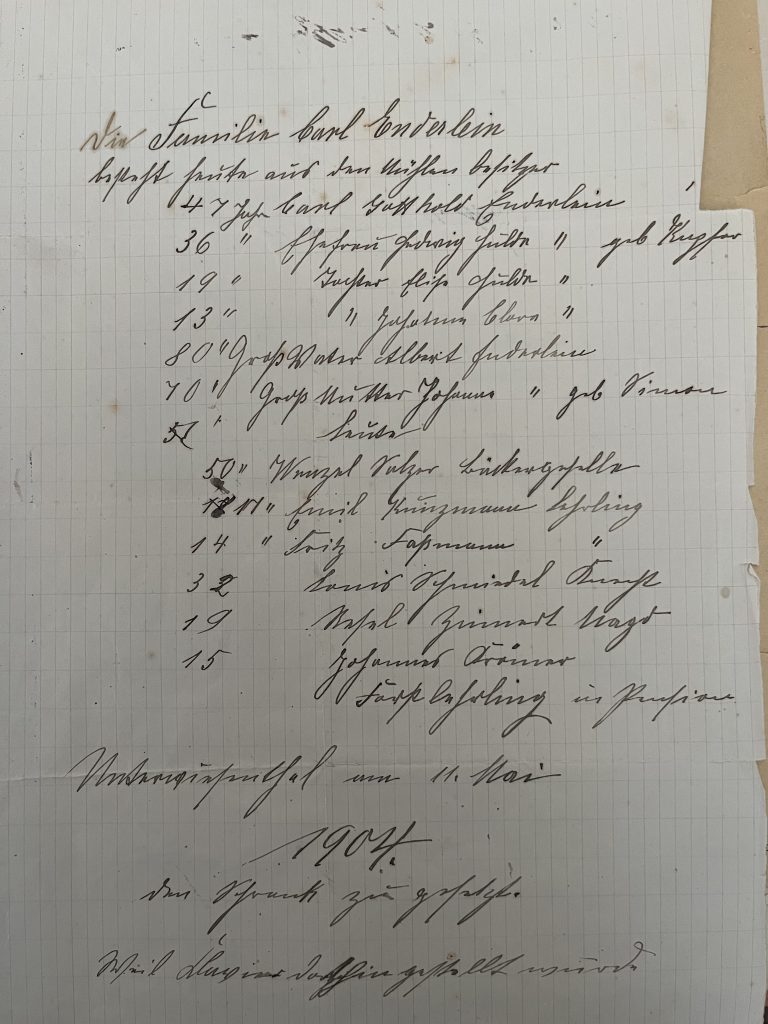 Die Familie Carl Enderlein
besteht heute aus den Mühlen besitzer
47 Jahr Carl Gotthold Enderlein
36 " Ehefrau Hedwig Hulda " geb Kupfer
19 " Tochter Elise Hulda "
13 " " Johanna Clara "
80 " Groß Vater Albert Enderlein
70 " Groß Mutter Johanne " geb Simon
" Leute
50 " Wenzel Salzer Bäckergeselle
17 " Emil Kunzmann Lehrling
14 " Fritz Faßmann "
32 Louis Schmiedel Knecht
19 Magd
15 Johannes Krömer
Forstlehrling in Pension
Unterwiesenthal am 11. Mai
1904.
den Schrank zu gesetzt.
Weil Klavier dorthin gestellt wurde